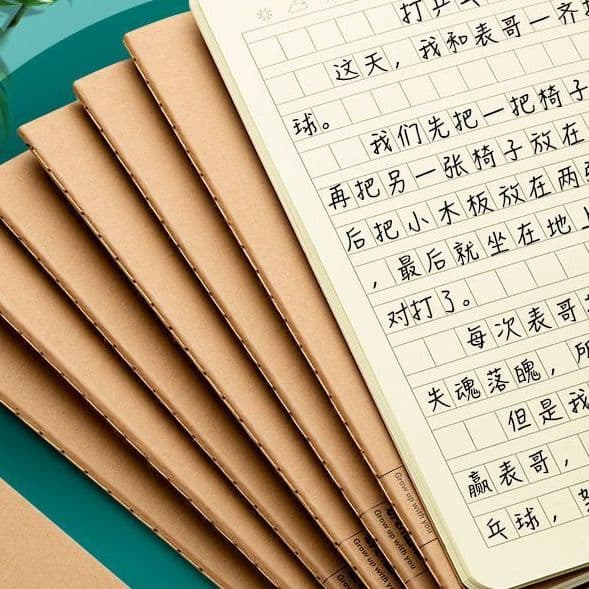 打乒乓
这天，我和表哥一齐
球。
我们先把一把椅子
再把另一张椅子放在
后把小木板放在两
，最后就坐在地上
对打了。
每次表哥
失魂落魄，所
但是我
赢表哥，
乒球，
Grow up with you
Grow up with you
Grow up with you